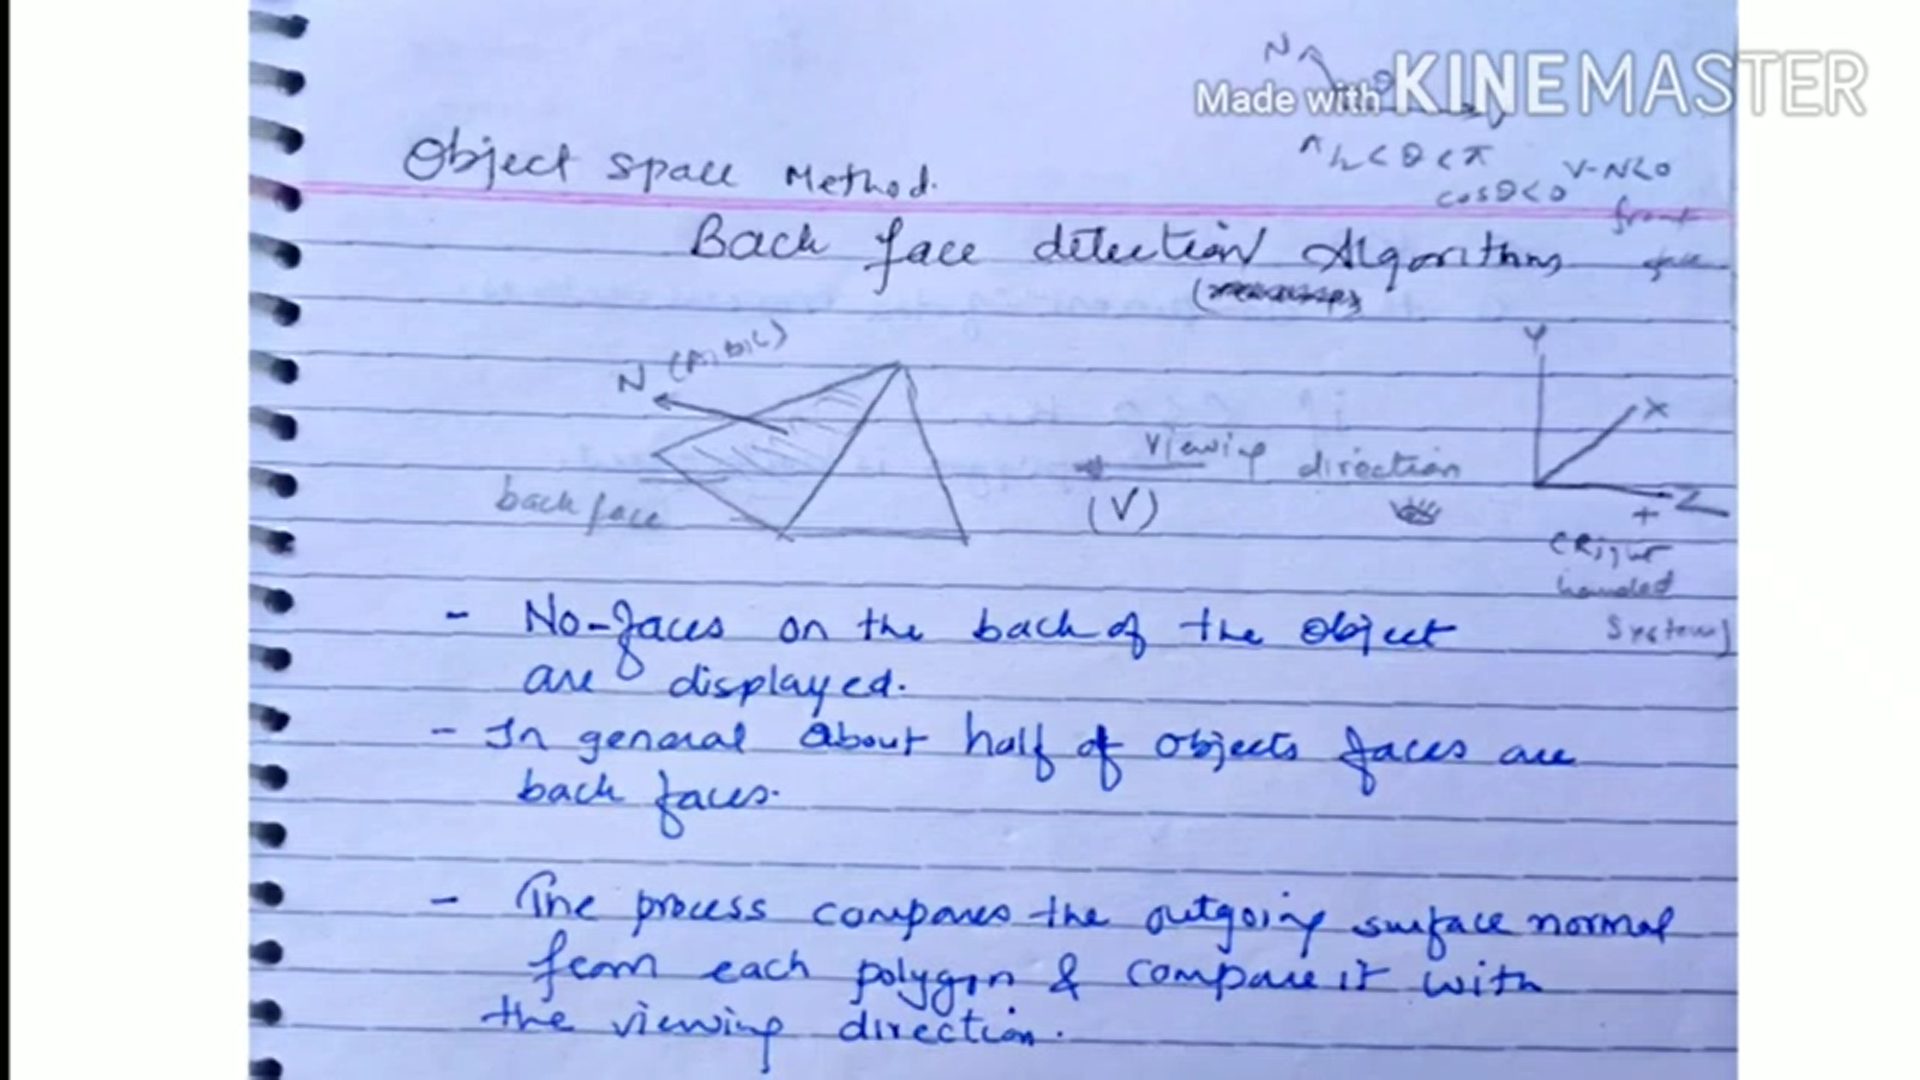 N
Made with KINEMASTER
π/2 < θ < π
V-N<0
cosθ<0
front
face
Object space Method.
Back face detection Algorithm
N (A,B,C)
Y
X
Z
+
viewing direction
(V)
back face
(Right
handed
System)
- No-faces on the back of the object
are displayed.
- In general About half of objects faces are
back faces.
- The process compares the outgoing surface normal
from each polygon & compare it with
the viewing direction.